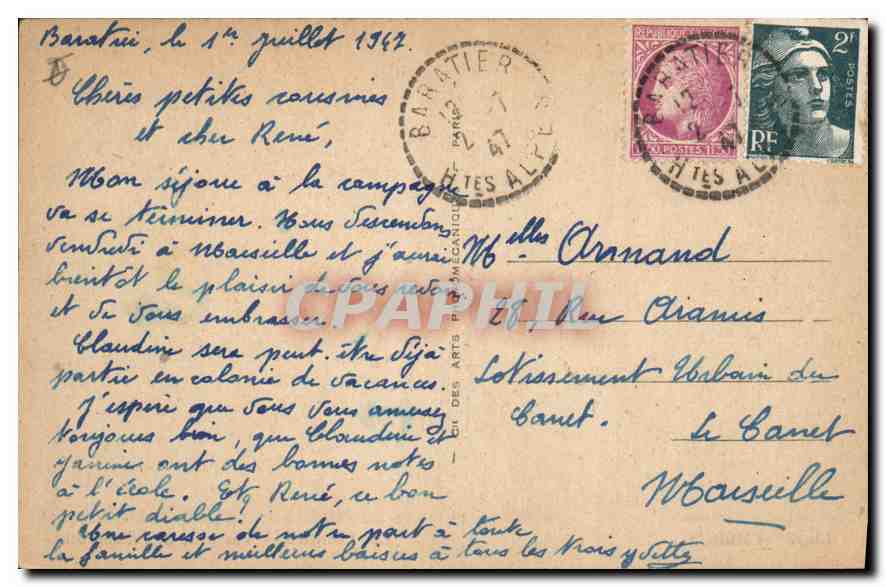 Baratier, le 1er juillet 1947.
Chères petites cousines
et cher René,
Mon séjour à la campagne
va se terminer. Nous descendons
vendredi à Marseille et j'aurai
bientôt le plaisir de vous revoir
et de vous embrasser.
Claudine sera peut-être déjà
partie en colonie de vacances.
J'espère que vous vous amusez
toujours bien, que Claudine et
Janine ont des bonnes notes
à l'école. Et René, ce bon
petit diable!
Une caresse de notre part à toute
la famille et meilleurs baisers à tous les trois Yvette
BARATIER
12 - 7
2 47
Htes ALPES
REPUBLIQUE
POSTES
2F
POSTES
RF
BARATIER
12
2 47
Htes ALPES
DES ARTS PHOTOMÉCANIQUES
PARIS
Melles Armand
28, Rue Aramis
Lotissement Urbain du
Canet.
Le Canet
Marseille
CPAPHIL